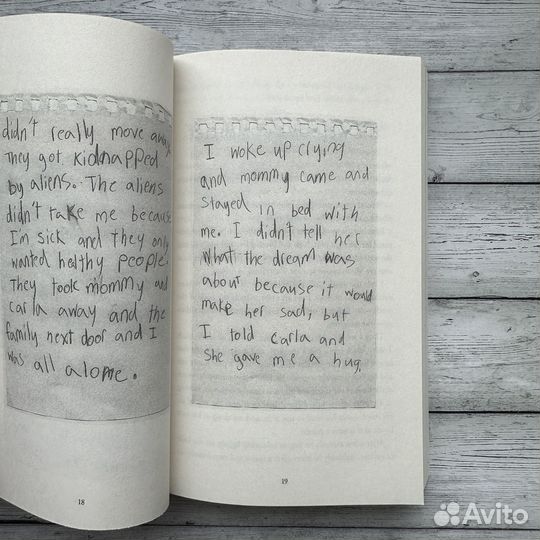 didn't really move away
They got kidnapped
by aliens. The aliens
didn't take me because
I'm sick and they only
wanted healthy people.
They took mommy and
carla away and the
family next door and I
was all alone.
18
I woke up crying
and mommy came and
stayed in bed with
me. I didn't tell her
what the dream was
about because it would
make her sad, but
I told carla and
she gave me a hug.
19
Avito